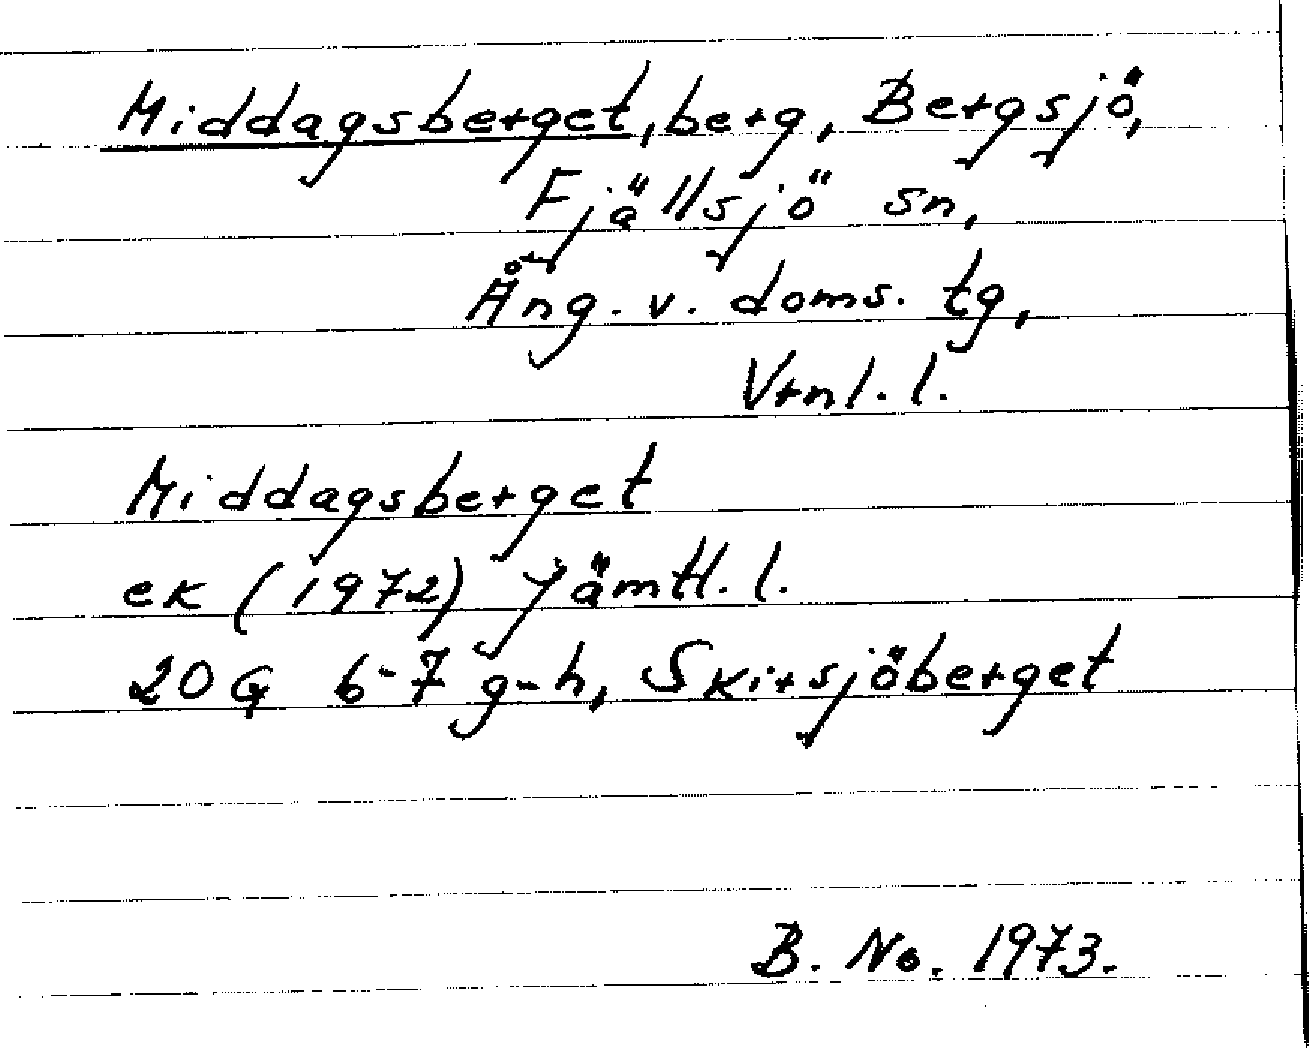 Middagsberget, berg, Bergsjö,
Fjällsjö sn,
Ång. v. doms. tg,
Vrnl. l.
Middagsberget
ek (1972) Jämtl. l.
20 G 6-7 g-h, Skirsjöberget
B. No. 1973.